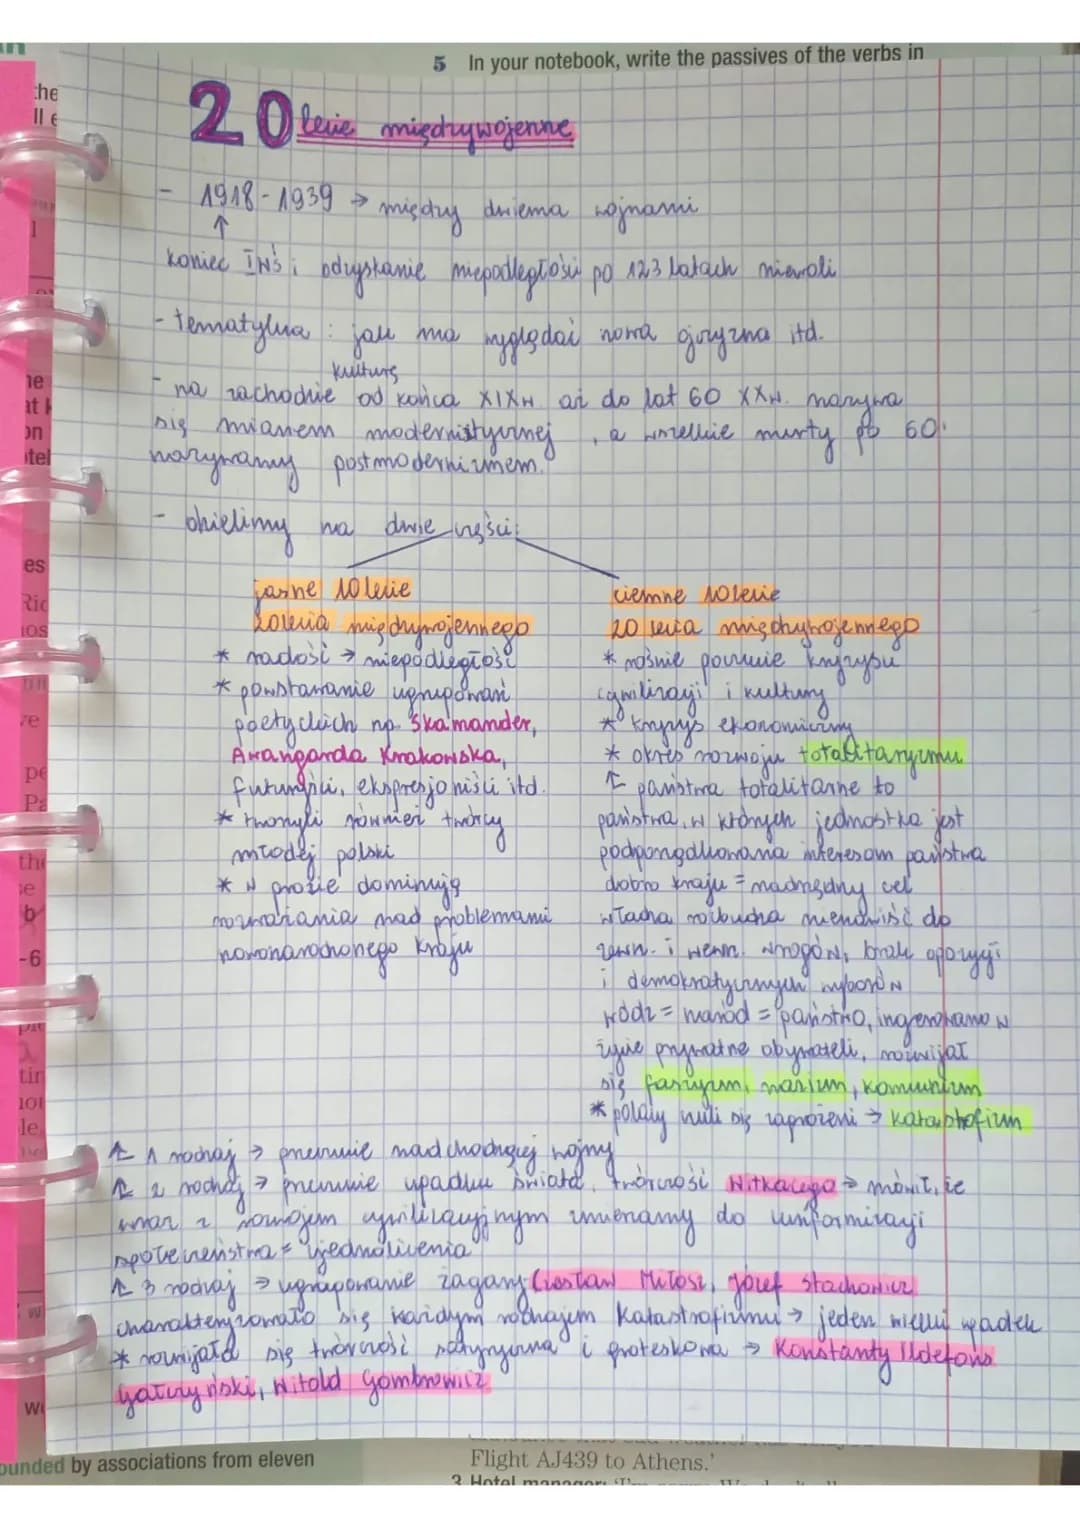 5 In your notebook, write the passives of the verbs in
20lecie międzywojenne
- 1918-1939 → między dwiema wojnami
↑
koniec IWŚ i odzyskanie niepodległości po 123 latach niewoli
- tematyka : jak ma wyglądać nowa ojczyzna itd.
kulturę
- na zachodzie od końca XIXw aż do lat 60 XXw. nazywa
się mianem modernistycznej , a wszelkie nurty po 60.
nazywamy postmodernizmem.
- dzielimy na dwie części:
jasne 10lecie
20lecia międzywojennego
* radość → niepodległość
* powstawanie ugrupowań
poetyckich np. Skamander,
Awangarda Krakowska,
futuryści, ekspresjoniści itd.
* tworzyli również twórcy
młodej polski
* w prozie dominują
rozważania nad problemami
nowonarodzonego kraju
ciemne 10lecie
20 lecia międzywojennego
* rośnie poczucie kryzysu
cywilizacji i kultury
* kryzys ekonomiczny
* okres rozwoju totalitaryzmu
↑ państwa totalitarne to
państwa, w których jednostka jest
podporządkowana interesom państwa
dobro kraju = nadrzędny cel
władza rozbudza nienawiść do
zewn. i wewn. wrogów, brak opozycji
i demokratycznych wyborów
wódz = naród = państwo, ingerowano w
życie prywatne obywateli, rozwijał
się faszyzm, nazizm, komunizm
* polacy czuli się zagrożeni → katastrofizm
↑ 1 rodzaj → przeczucie nadchodzącej wojny
↑ 2 rodzaj → przeczucie upadku świata, twórczość Witkacego → mówił, że
wraz z rozwojem cywilizacyjnym zmierzamy do uniformizacji
społeczeństwa = ujednolicenia
↑ 3 rodzaj → ugrupowanie żagary Czesław Miłosz, Józef Stachowicz
charakteryzowało się każdym rodzajem katastrofizmu → jeden wielki upadek
* rozwijała się twórczość satyryczna i groteskowa → Konstanty Ildefons
Gałczyński, Witold Gombrowicz
ounded by associations from eleven
Flight AJ439 to Athens.'
3 Hotel manager: